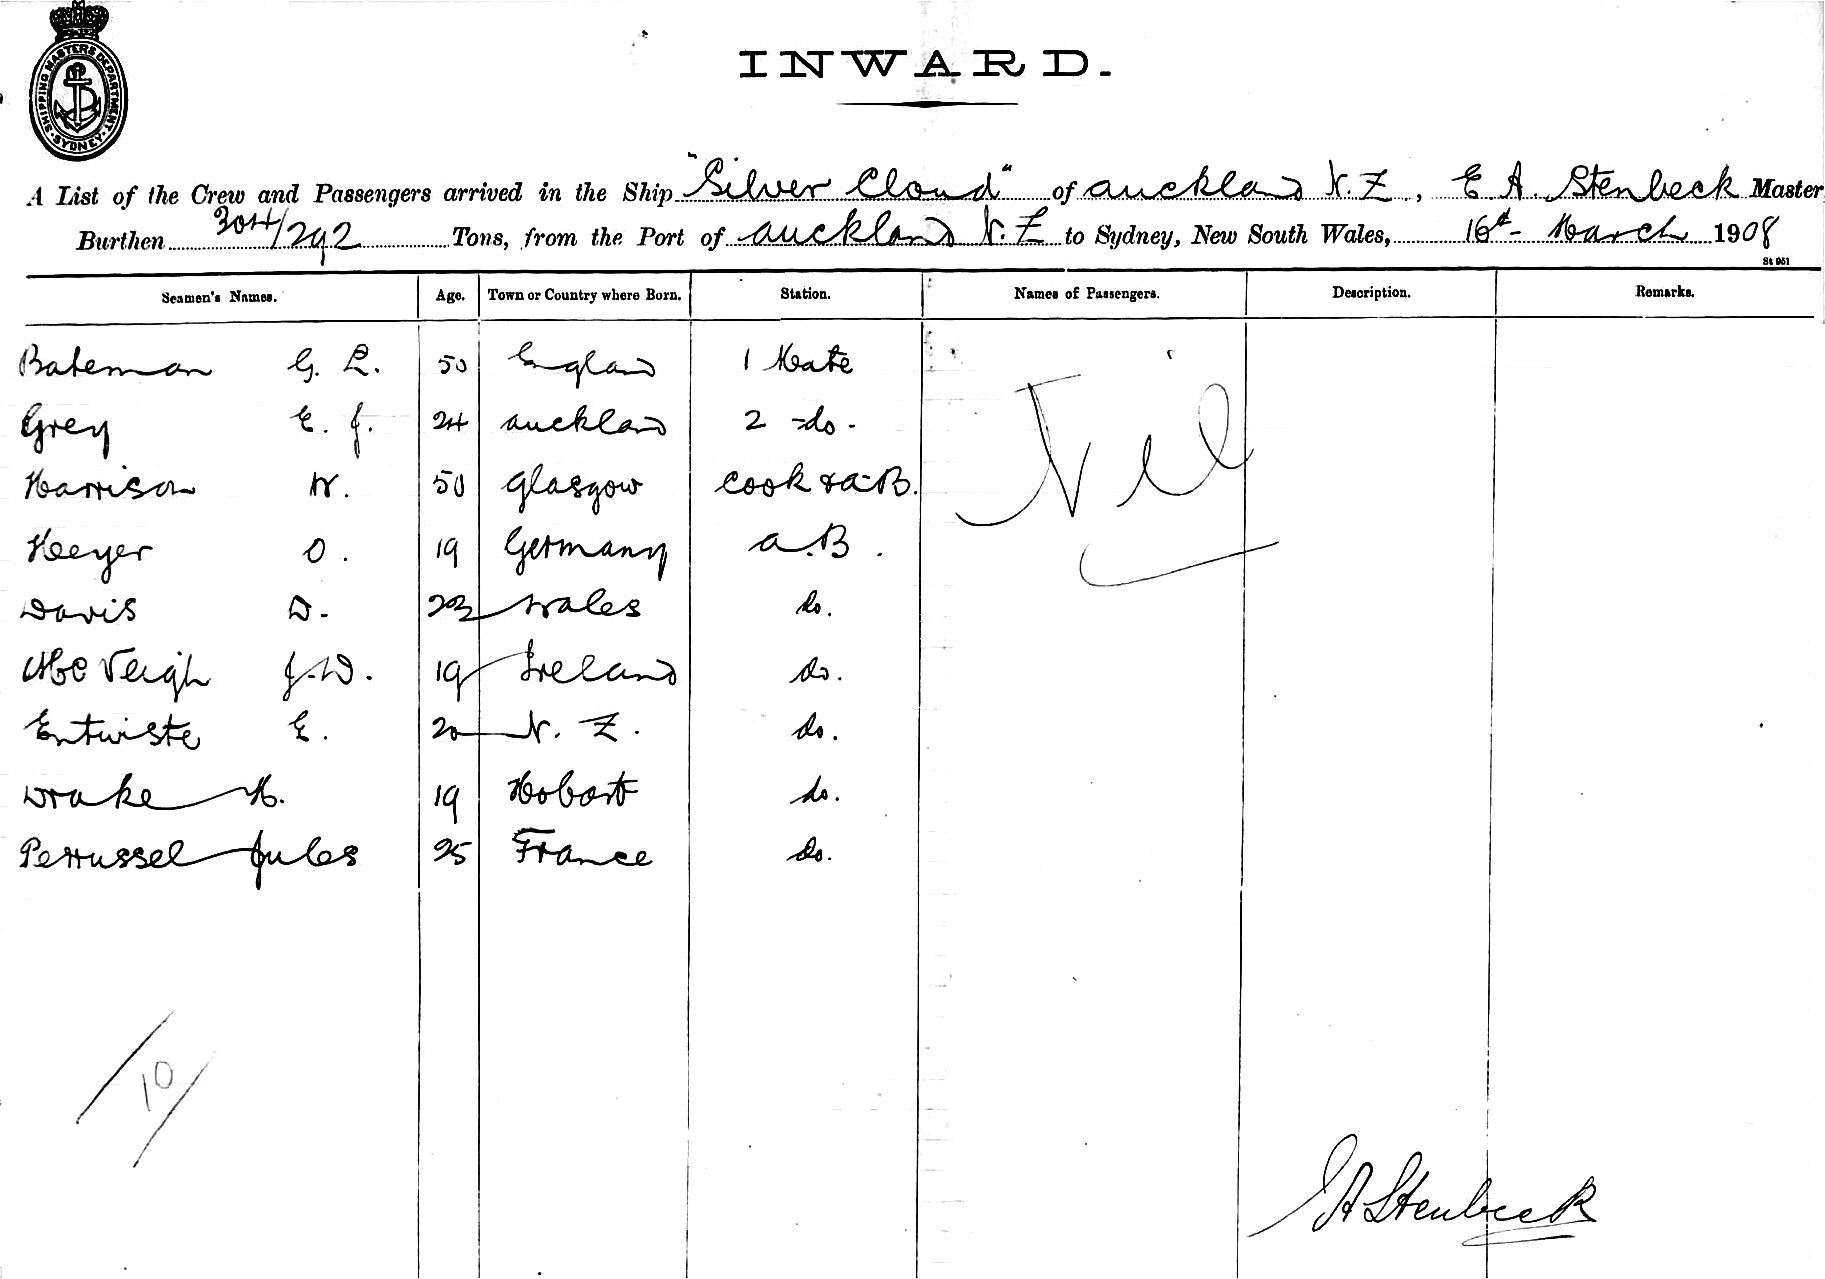 SHIPPING MASTERS DEPARTMENT · SYDNEY ·
INWARD.
A List of the Crew and Passengers arrived in the Ship "Silver Cloud" of Auckland N. Z, E A. Stenbeck Master
Burthen 304/292 Tons, from the Port of Auckland N. Z to Sydney, New South Wales, 16th March 1908
St 951
Seamen's Names. Age. Town or Country where Born. Station. Names of Passengers. Description. Remarks.
Bateman G. L. 50 England 1 Mate
Grey E. J. 24 Auckland 2 -do-
Nil
Harrison W. 50 Glasgow Cook & A.B.
Heeyer O. 19 Germany A.B.
Davis D. 23 Wales do.
McVeigh J. D. 19 Ireland do.
Entwiste E. 20 N. Z. do.
Drake H. 19 Hobart do.
Perrussel Jules 25 France do.
/10/
EA Stenbeck